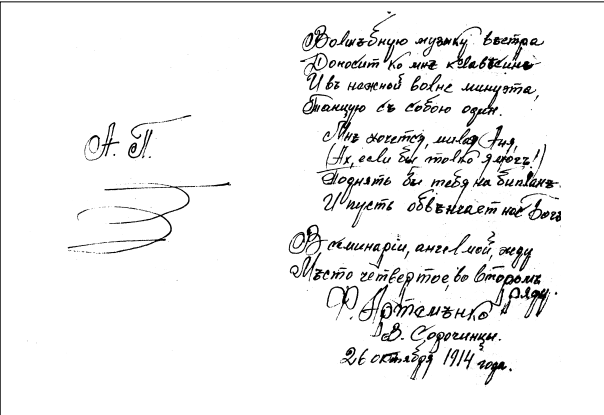 А. П.
Волшѣбную музыку вѣтра
Доносит ко мнѣ клавѣсинъ
И въ нежной волне минуэта,
Танцую съ собою один.
Мнѣ хочется, милая Аня,
(Ах, если бы только я могъ!)
Поднять бы тебя на биплан
И пусть обвѣнчает нас Богъ
В семинаріи, ангел мой, жду
Мѣсто четвертое, во второмъ
ряду.
Р. Артемѣнко
В. Сорочинцы.
26 октября 1914 года.